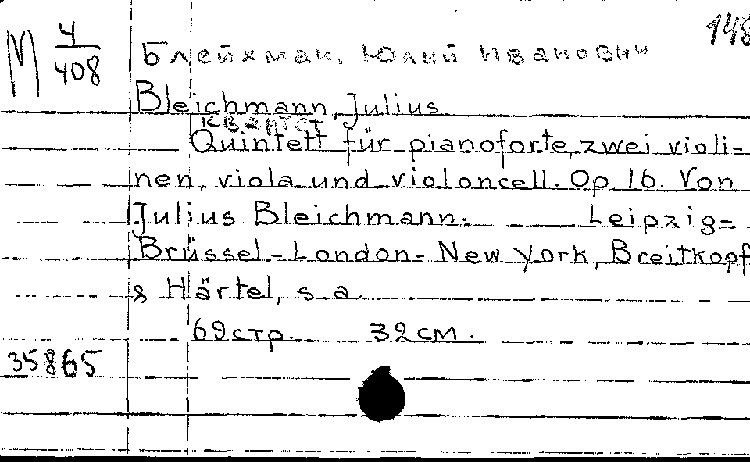 148
М 4/408 Блейхман, Юлий Иванович
Bleichmann, Julius
Квинтет
Quintett für pianoforte, zwei violi-
nen, viola und violoncell. Op. 16. Von
Julius Bleichmann. Leipzig-
Brüssel-London-New York, Breitkopf
& Härtel, s. a.
69 стр. 32 см.
35865